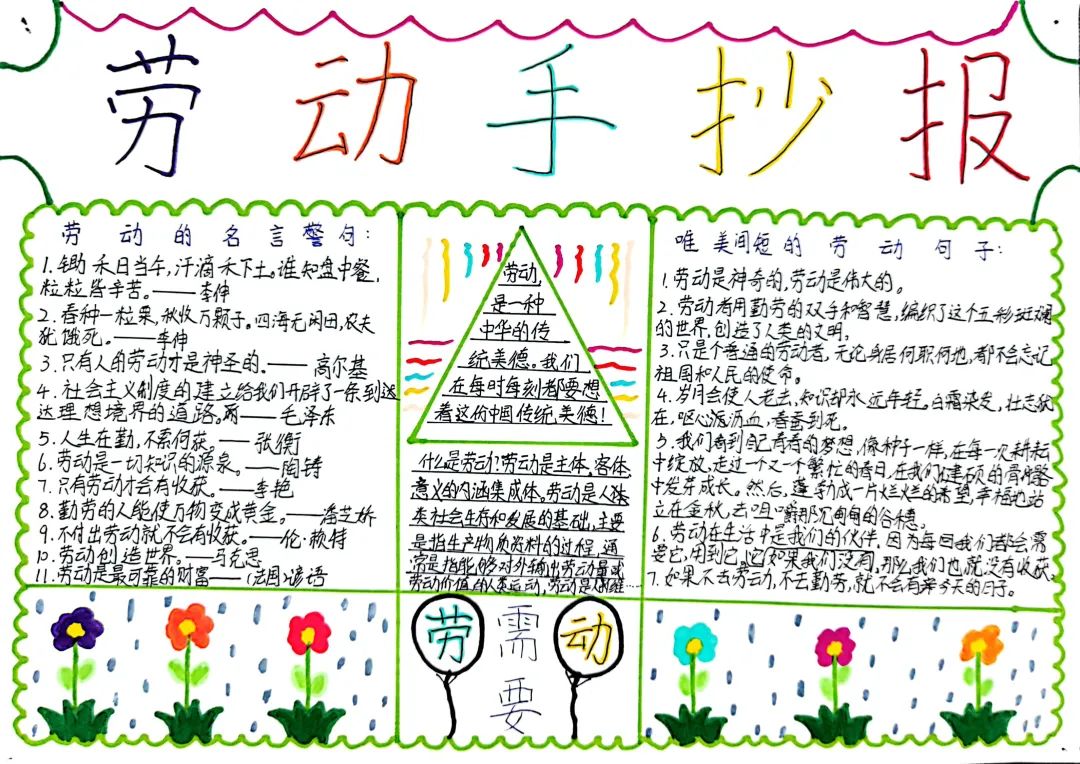 劳动手抄报
劳动的名言警句:
1.锄禾日当午,汗滴禾下土。谁知盘中餐,
粒粒皆辛苦。——李伸
2.春种一粒粟,秋收万颗子。四海无闲田,农夫
犹饿死。——李伸
3.只有人的劳动才是神圣的.—— 高尔基
4.社会主义制度的建立给我们开辟了一条到达
达理想境界的道路。——毛泽东
5.人生在勤,不索何获。——张衡
6.劳动是一切知识的源泉。——陶铸
7.只有劳动才会有收获。——李艳
8.勤劳的人能使万物变成黄金。——潘芝娇
9.不付出劳动就不会有收获。——伦·赖特
10.劳动创造世界。——马克思
11.劳动是最可靠的财富——(法国)谚语
劳动,
是一种
中华的传
统美德。我们
在每时每刻都要想
着这份中国传统美德!
什么是劳动?劳动是主体、客体、
意义的内涵集成体。劳动是人类
类社会生存和发展的基础,主要
是指生产物质资料的过程,通
常是指能够对外输出劳动量或
劳动价值的人类运动,劳动是人维……
唯美间短的劳动句子:
1.劳动是神奇的,劳动是伟大的。
2.劳动者用勤劳的双手和智慧,编织了这个五彩斑斓
的世界,创造了人类的文明。
3.只是个普通的劳动者,无论身居何职何地,都不会忘记
祖国和人民的使命。
4.岁月会使人老去,知识却永远年轻。白霜染发,壮志犹
在,呕心沥沥血,春蚕到死。
5.我们看到自己青春的梦想,像种子一样,在每一次耕耘
中绽放,走过一个又一个繁忙的春日,在我们建硕的骨骼
中发芽成长。然后,蓬勃成一片烂烂的希望,幸福地站
立在金秋,去咀嚼那沉甸甸的谷穗。
6.劳动在生活中是我们的伙伴,因为每回我们都会需
要它,用到它,它如果我们没有,那么我们也就没有收获。
7.如果不去劳动,不去勤劳,就不会有今天的日子。
劳
需要
动